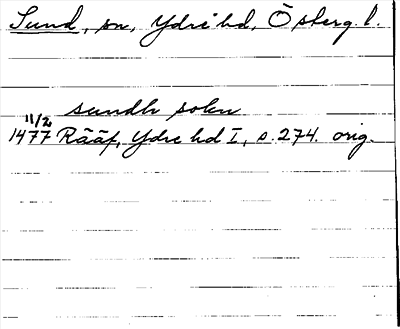 Sund, sn, Ydre hd, Östergl.
sundh sokn
11/2
1477 Rääf, Ydre hd I, s. 274. orig.